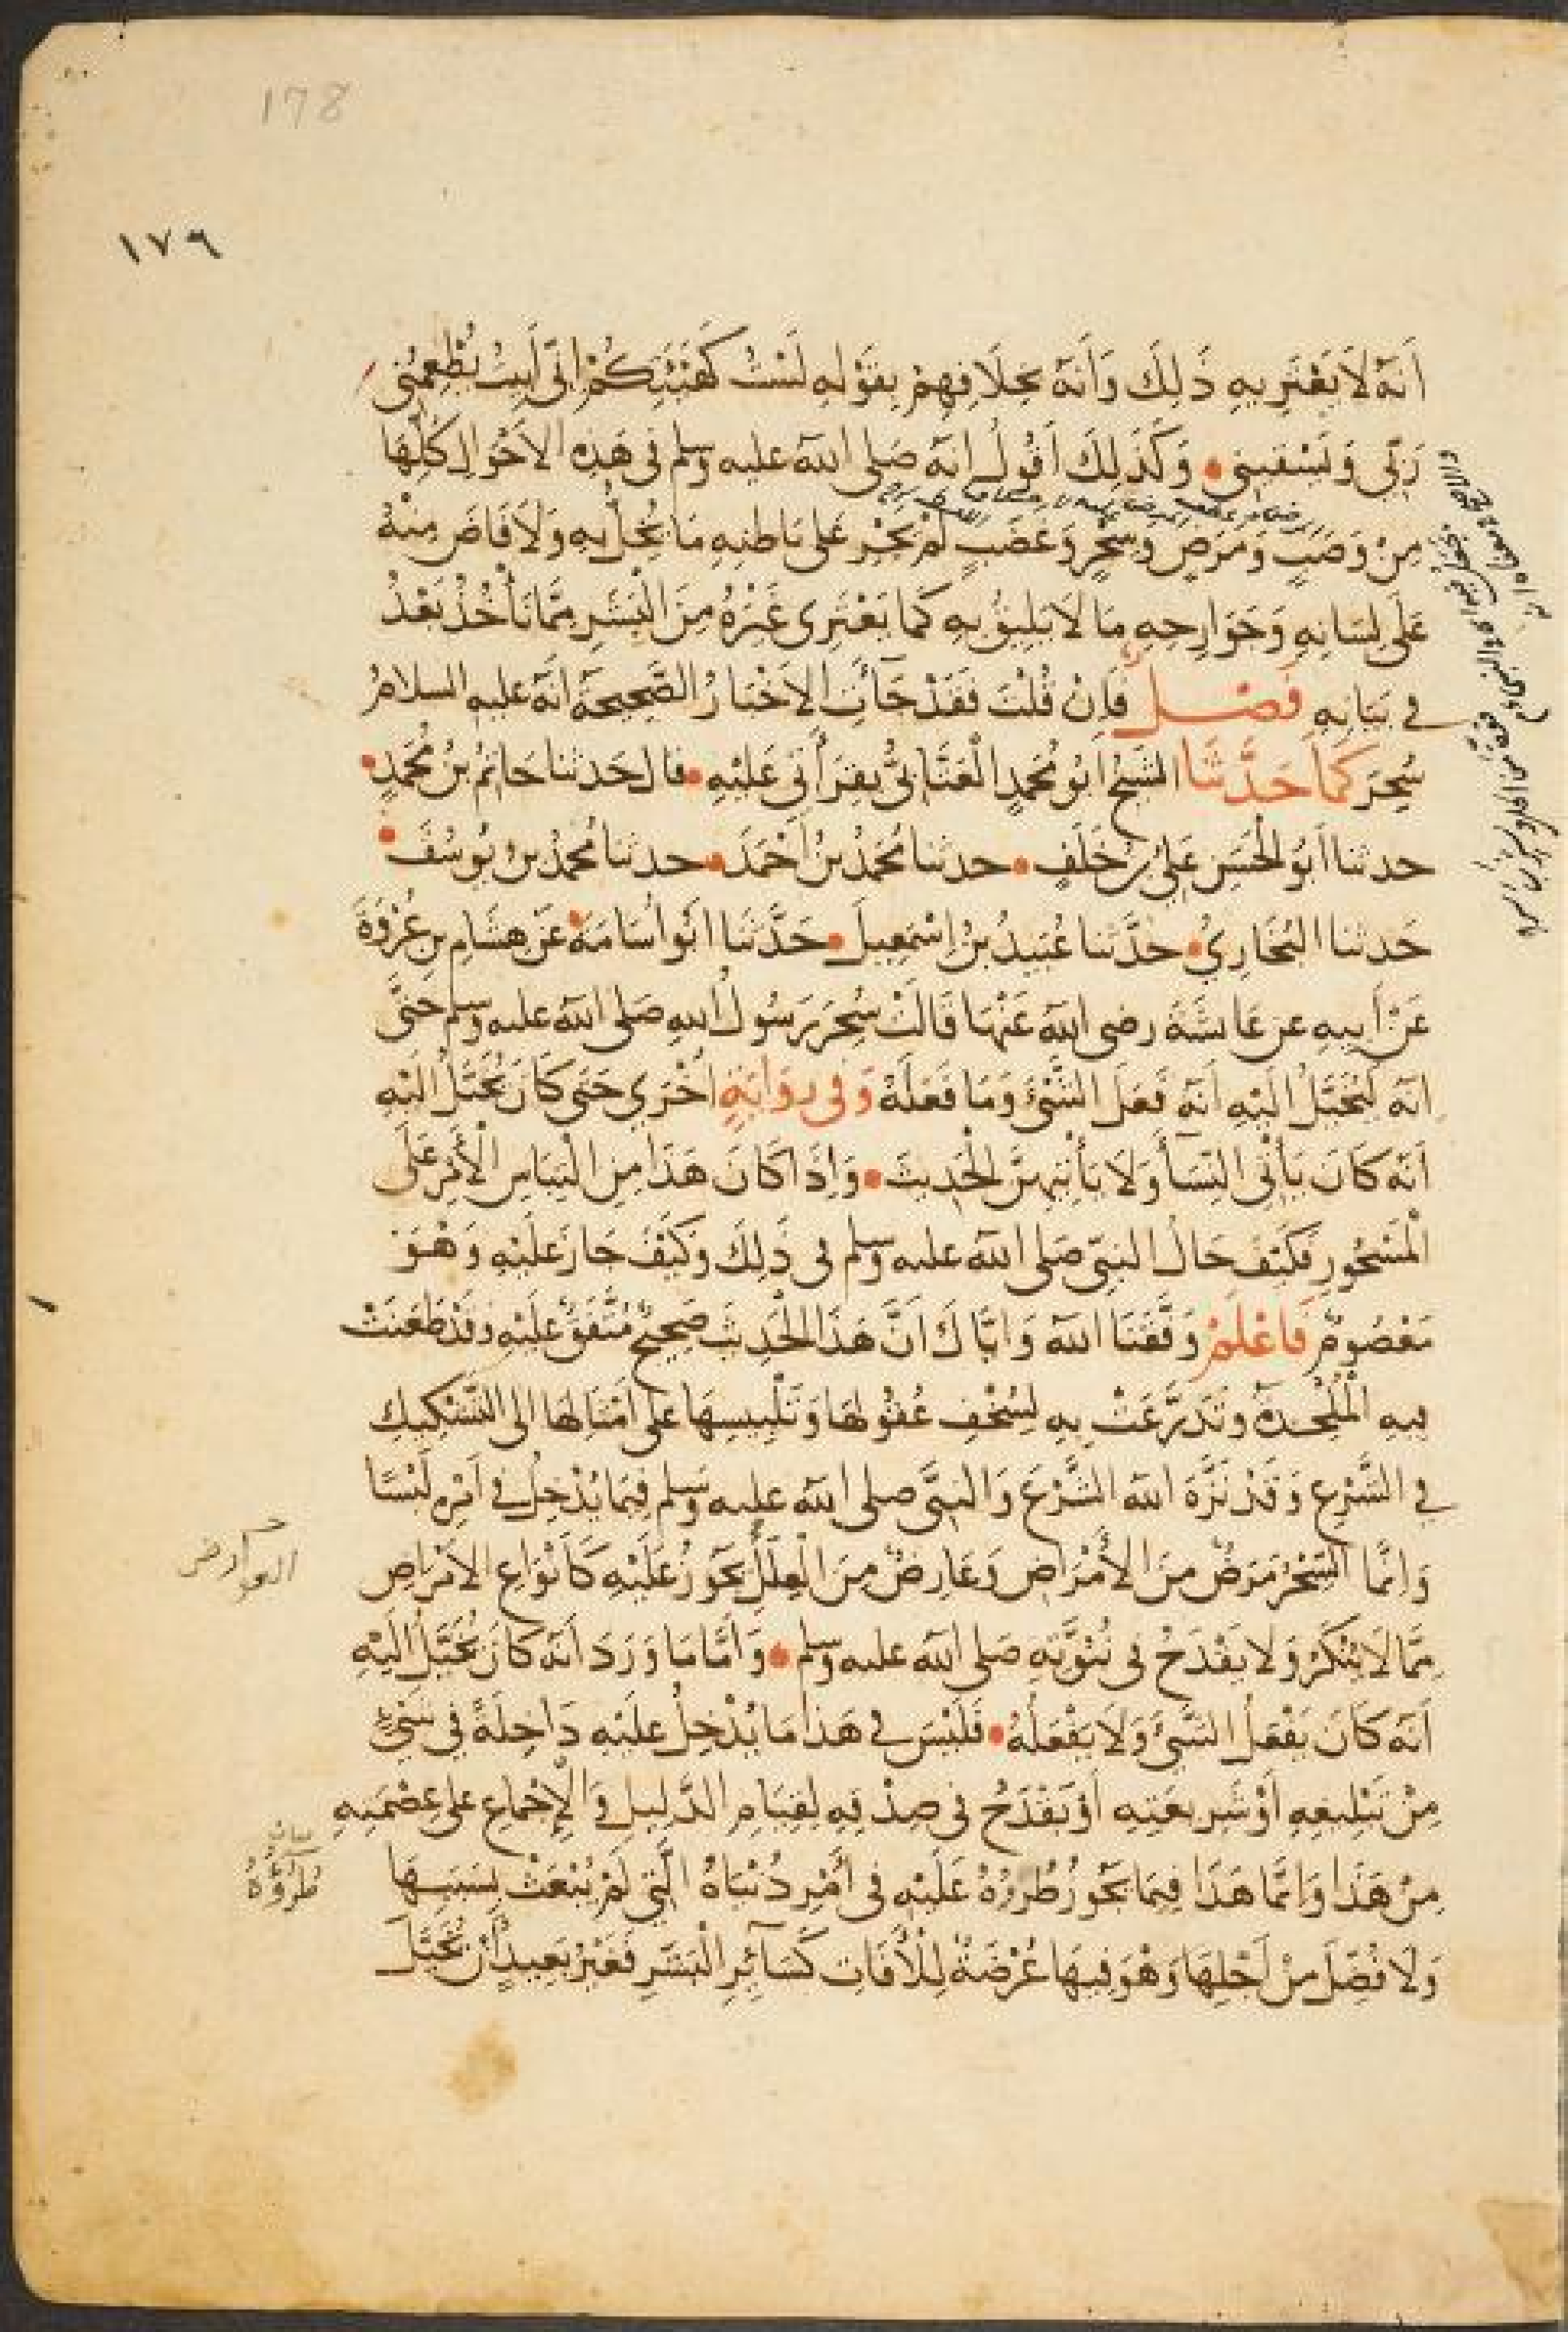 178
١٧٦
اَنَّهُ لَا يَعْتَرِيهِ ذَلِكَ وَاَنَّهُ بِخِلَافِهِمْ بِقَوْلِهِ لَسْتُ كَهَيْئَتِكُمْ اِنِّى اَبِيتُ يُطْعِمُنِى
رَبِّى وَيَسْقِينِى وَكَذَلِكَ اَقُولُ انَّهُ صَلى الله عليه وسلم فى هَذِهِ الاَحْوَالِ كُلِّهَا
مِنْ وَصَبٍ وَمَرَضٍ وَسِحْرٍ وَغَضَبٍ لَمْ يَجْرِ عَلى بَاطِنِهِ مَا يُخِلُّ بِهِ وَلَا فَاضَ مِنْهُ
عَلَى لِسَانِهِ وَجَوَارِحِهِ مَا لَا يَلِيقُ بِهِ كَمَا يَعْتَرِى غَيْرَهُ مِنَ الْبَشَرِ مِمَّا نَأْخُذُ بَعْدُ
فِى بَيَانِهِ فَصْلٌ فَاِنْ قُلْتَ فَقَدْ جَآءَتِ الاَخْبَارُ الصَّحِيحَةُ اَنَّهُ عليه السلامُ
سُحِرَ كَمَا حَدَّثَنَا الشَيْخُ ابُو مُحَمَدٍ الْعَتَّابِىُّ بِقِرَأَتِى عَلَيْهِ قال حَدثنا حَاتِمُ بْنُ مُحَمَّدٍ
حدثنا اَبُو الْحَسَنِ عَلِىُّ بْنُ خَلَفٍ حدثنا مُحَمَدُ بْنُ اَحْمَدَ حدثنا مُحَمَدُ بن يُوسُفَ
حَدثنا البُخَارِيُّ حدَّثنا عُبَيدُ بْنُ اِسْمَعِيلَ حَدَّثَنَا ابُو اُسَامَةَ عَنْ هِشَامِ بنِ عُرْوَةَ
عَنْ اَبِيهِ عن عَائشَةَ رضى الله عَنْهَا قَالَتْ سُحِرَ رَسُولُ اللهِ صَلى الله عليه وسلم حَتَّى
انّهُ لَيُخَيَّلُ الَيْهِ اَنَّهُ فَعَلَ الشَّىْءَ وَمَا فَعَلَهُ وَفى رِوَايَةٍ اُخْرَى حَتى كَانَ يُخَيَّلُ الَيْهِ
اَنّهُ كَانَ يَأْتِى النِّسَآءَ وَلَا يَأْتِيهِنَّ الْحَدِيثَ وَاِذَا كَانَ هَذَا مِنِ الْتِبَاسِ الْاَمْرِ عَلَى
الْمَسْحُورِ فَكَيْفَ حَالُ النبِىِّ صَلى الله عليه وسلم فى ذَلِكَ وَكَيْفَ جَازَ عَلَيْهِ وَهْوَ
مَعْصُومٌ فَاعْلَمْ وَفَّقَنَا الله وَايَّاكَ اَنَّ هَذَا الْحَدِيثَ صَحِيحٌ مُتَّفَقٌ عَلَيْهِ وَقَدْ طَعَنَتْ
فِيهِ الْمُلْحِدَةُ وَتَدَرَّعَتْ بِهِ لِسُخْفِ عُقُولِهَا وَتَلْبِيسِهَا عَلى اَمْثَالِهَا الى التَّشْكِيكِ
فِى الشَّرْعِ وَقَدْ نَزَّهَ الله الشَّرْعَ وَالنبِىَّ صلى الله عليه وسلم عَمَّا يُدْخِلُ فى اَمْرِهِ لَبْسًا
وَانَّمَا السِّحْرُ مَرَضٌ مِنَ الاَمْرَاضِ وَعَارِضٌ مِنَ الْعِلَلِ يَجُوزُ عَلَيْهِ كَاَنْوَاعِ الاَمْرَاضِ
مِمَّا لَا يُنْكَرُ وَلَا يَقْدَحُ فى نُبُوَّتِهِ صَلى الله عليه وسلم وَاَمَّا مَا وَرَدَ انّهُ كَانَ يُخَيَّلُ الَيْهِ
اَنّهُ كَانَ يَفْعَلُ الشَّىْءَ وَلَا يَفْعَلُهُ فَلَيْسَ فى هَذا مَا يُدْخِلُ عَلَيْهِ دَاخِلَةً فى شَىْءٍ
مِنْ تَبْلِيغِهِ اَوْ شَرِيعَتِهِ اَوْ يَقْدَحُ فى صِدْقِهِ لِقِيَامِ الدَّلِيلِ وَالْاِجْمَاعِ عَلى عِصْمَتِهِ
مِنْ هَذَا وَانَّمَا هَذَا فِيمَا يَجُوزُ طُرُوُّهُ عَلَيْهِ فى اَمْرِ دُنْيَاهُ الَّتِى لَمْ يُبْعَثْ بِسَبَبِهَا
وَلَا فُضِّلَ مِنْ اَجْلِهَا وَهْوَ فِيهَا عُرْضَةٌ لِلْآفَاتِ كَسَآئِرِ الْبَشَرِ فَغَيْرُ بَعِيدٍ اَنْ يُخَيَّلَ
العوارض
بيان
طُرُوُّهُ